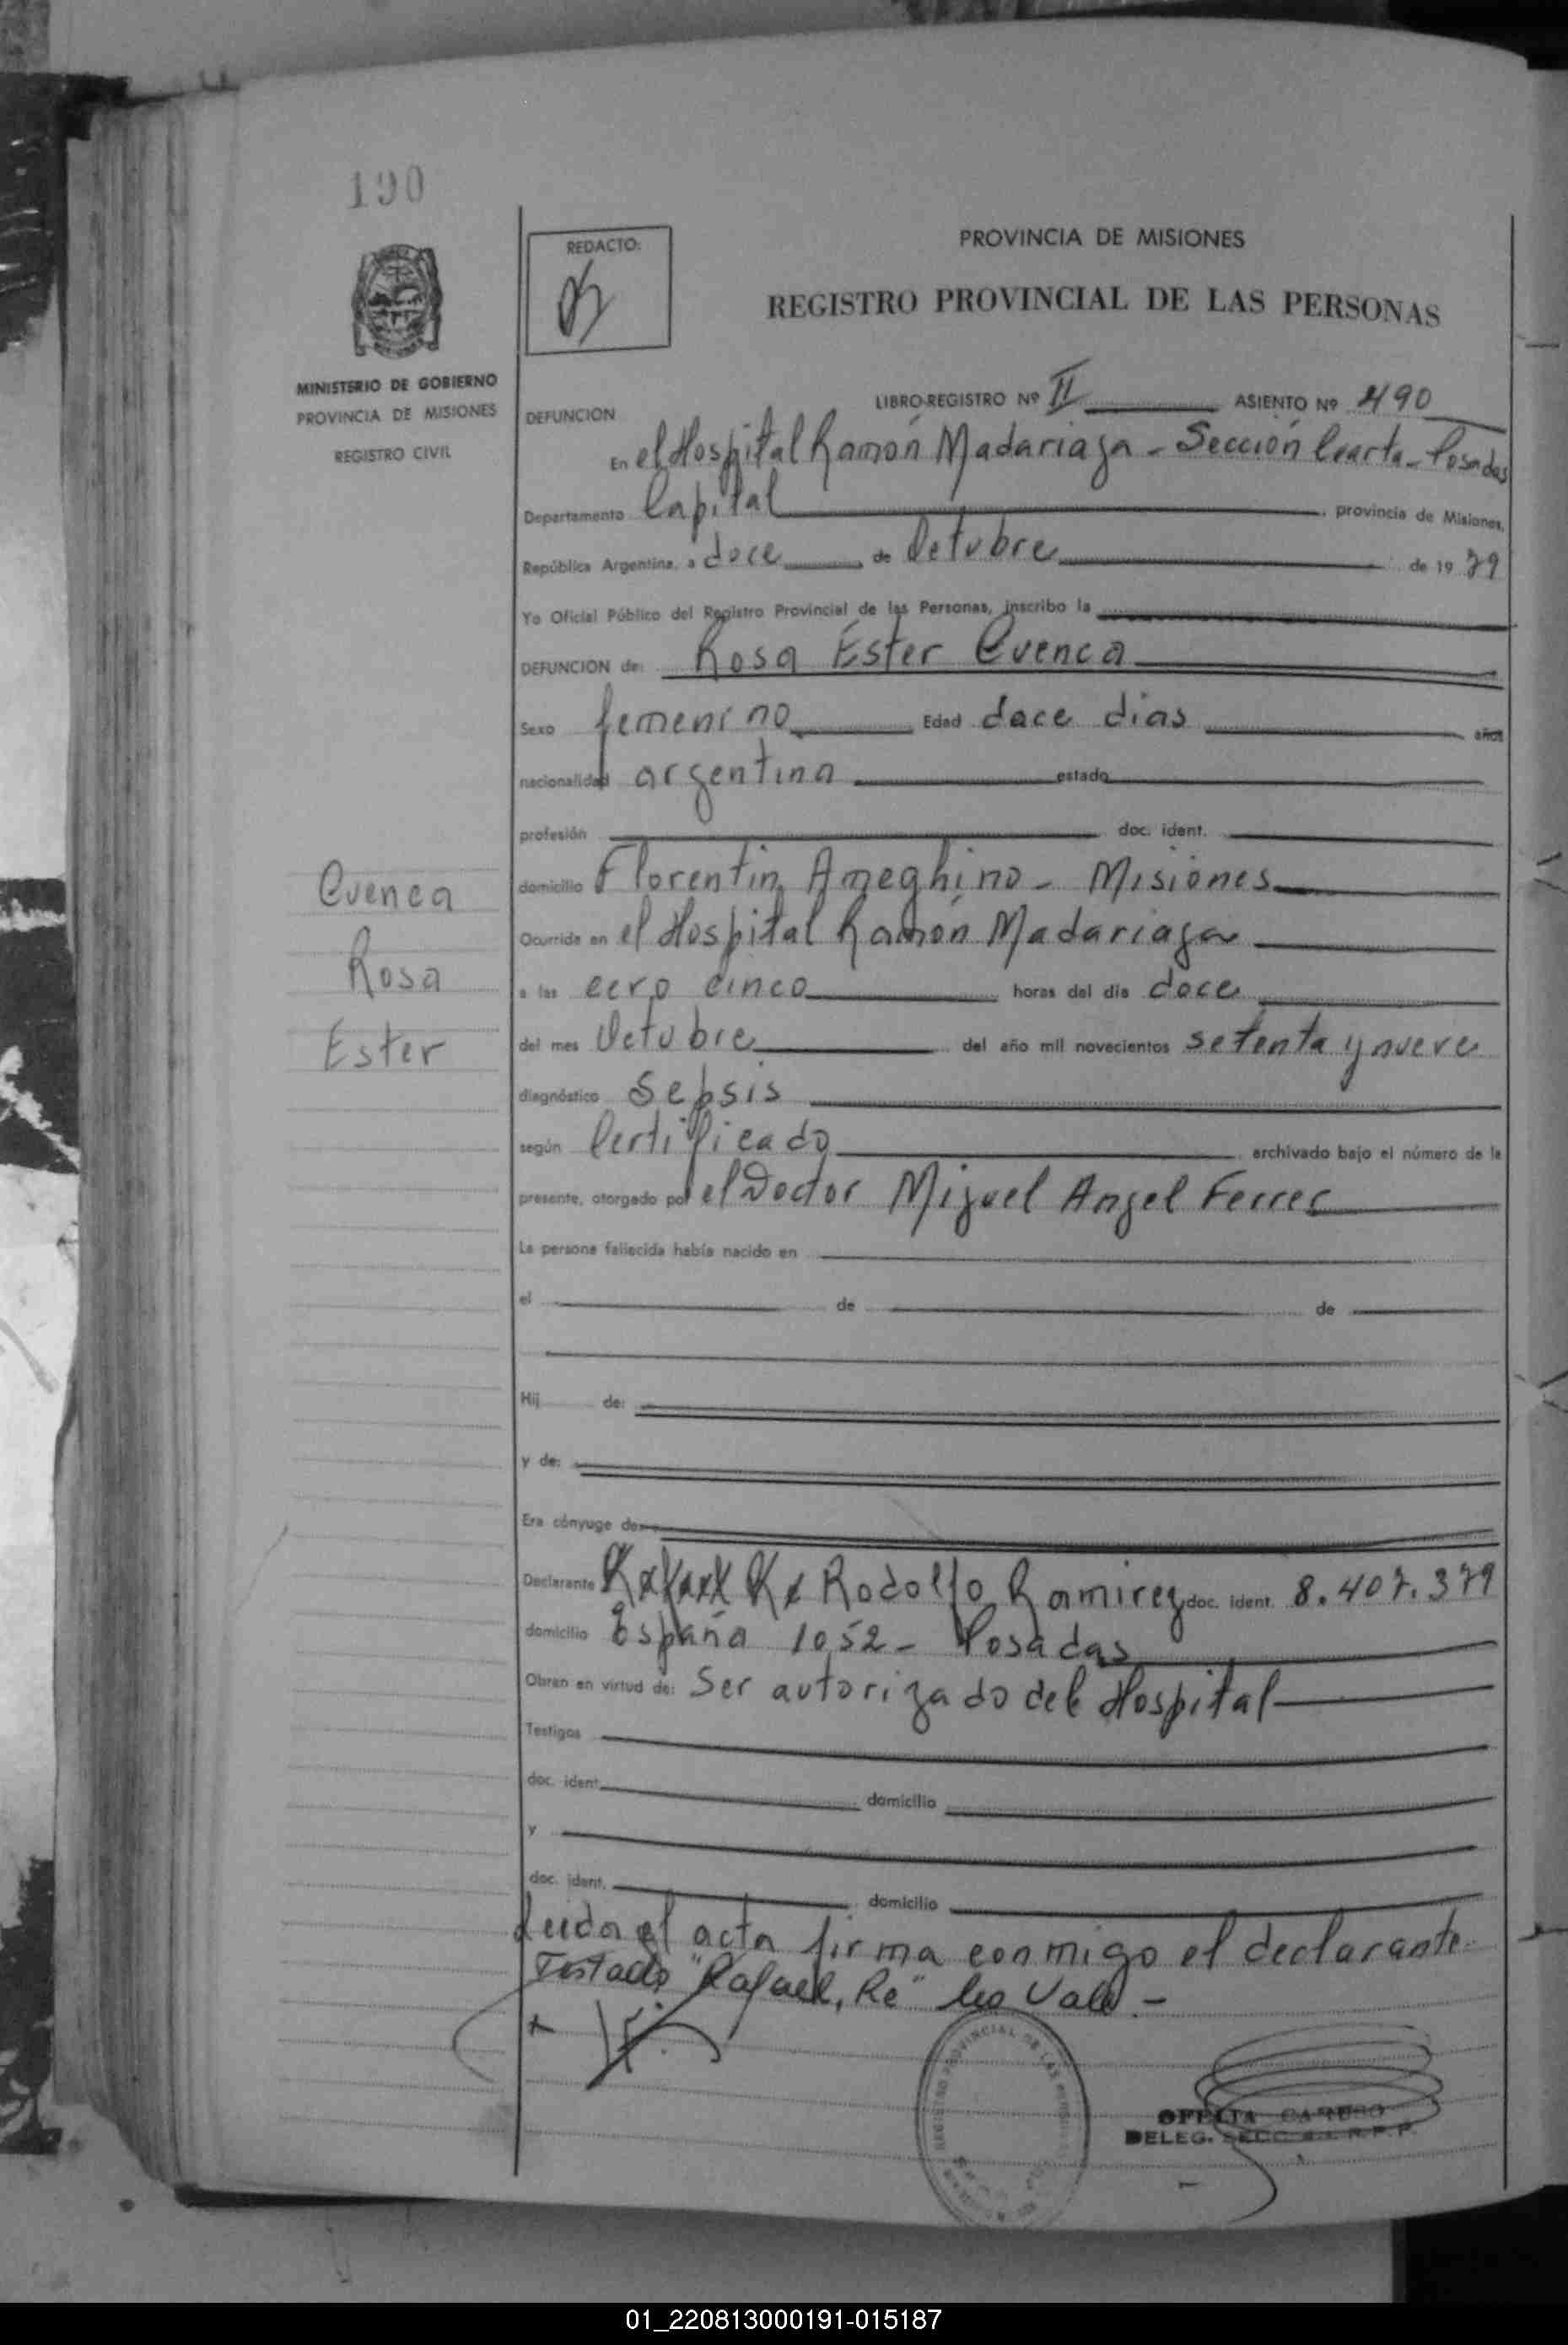 190
REDACTO:
PROVINCIA DE MISIONES
REGISTRO PROVINCIAL DE LAS PERSONAS
MINISTERIO DE GOBIERNO
PROVINCIA DE MISIONES
REGISTRO CIVIL
DEFUNCION
LIBRO-REGISTRO Nº II ASIENTO Nº 490
En el Hospital Ramón Madariaga - Sección Cuarta - Posadas
Departamento Capital, provincia de Misiones,
República Argentina, a doce de Octubre de 1979
Yo Oficial Público del Registro Provincial de las Personas, inscribo la
DEFUNCION de: Rosa Ester Cuenca
Sexo femenino Edad doce dias años
nacionalidad argentina estado
profesión doc. ident.
Cuenca
Rosa
Ester
domicilio Florentin Ameghino - Misiones
Ocurrida en el Hospital Ramón Madariaga
a las cero cinco horas del día doce
del mes Octubre del año mil novecientos setenta y nueve
diagnóstico Sepsis
según Certificado archivado bajo el número de la
presente, otorgado por el Doctor Miguel Angel Ferrer
La persona fallecida había nacido en
el de de
Hij de:
y de:
Era cónyuge de:
Declarante Rafael Re Rodolfo Ramirez doc. ident. 8.407.379
domicilio España 1052 - Posadas
Obran en virtud de: Ser autorizado del Hospital
Testigos
doc. ident. domicilio
y
doc. ident. domicilio
Leida el acta firma conmigo el declarante.
Testado "Rafael, Re" No Vale. -
REGISTRO PROVINCIAL DE LAS PERSONAS
OFELIA CARUSO
DELEG. SECC. 4a. R.P.P.
01_220813000191-015187